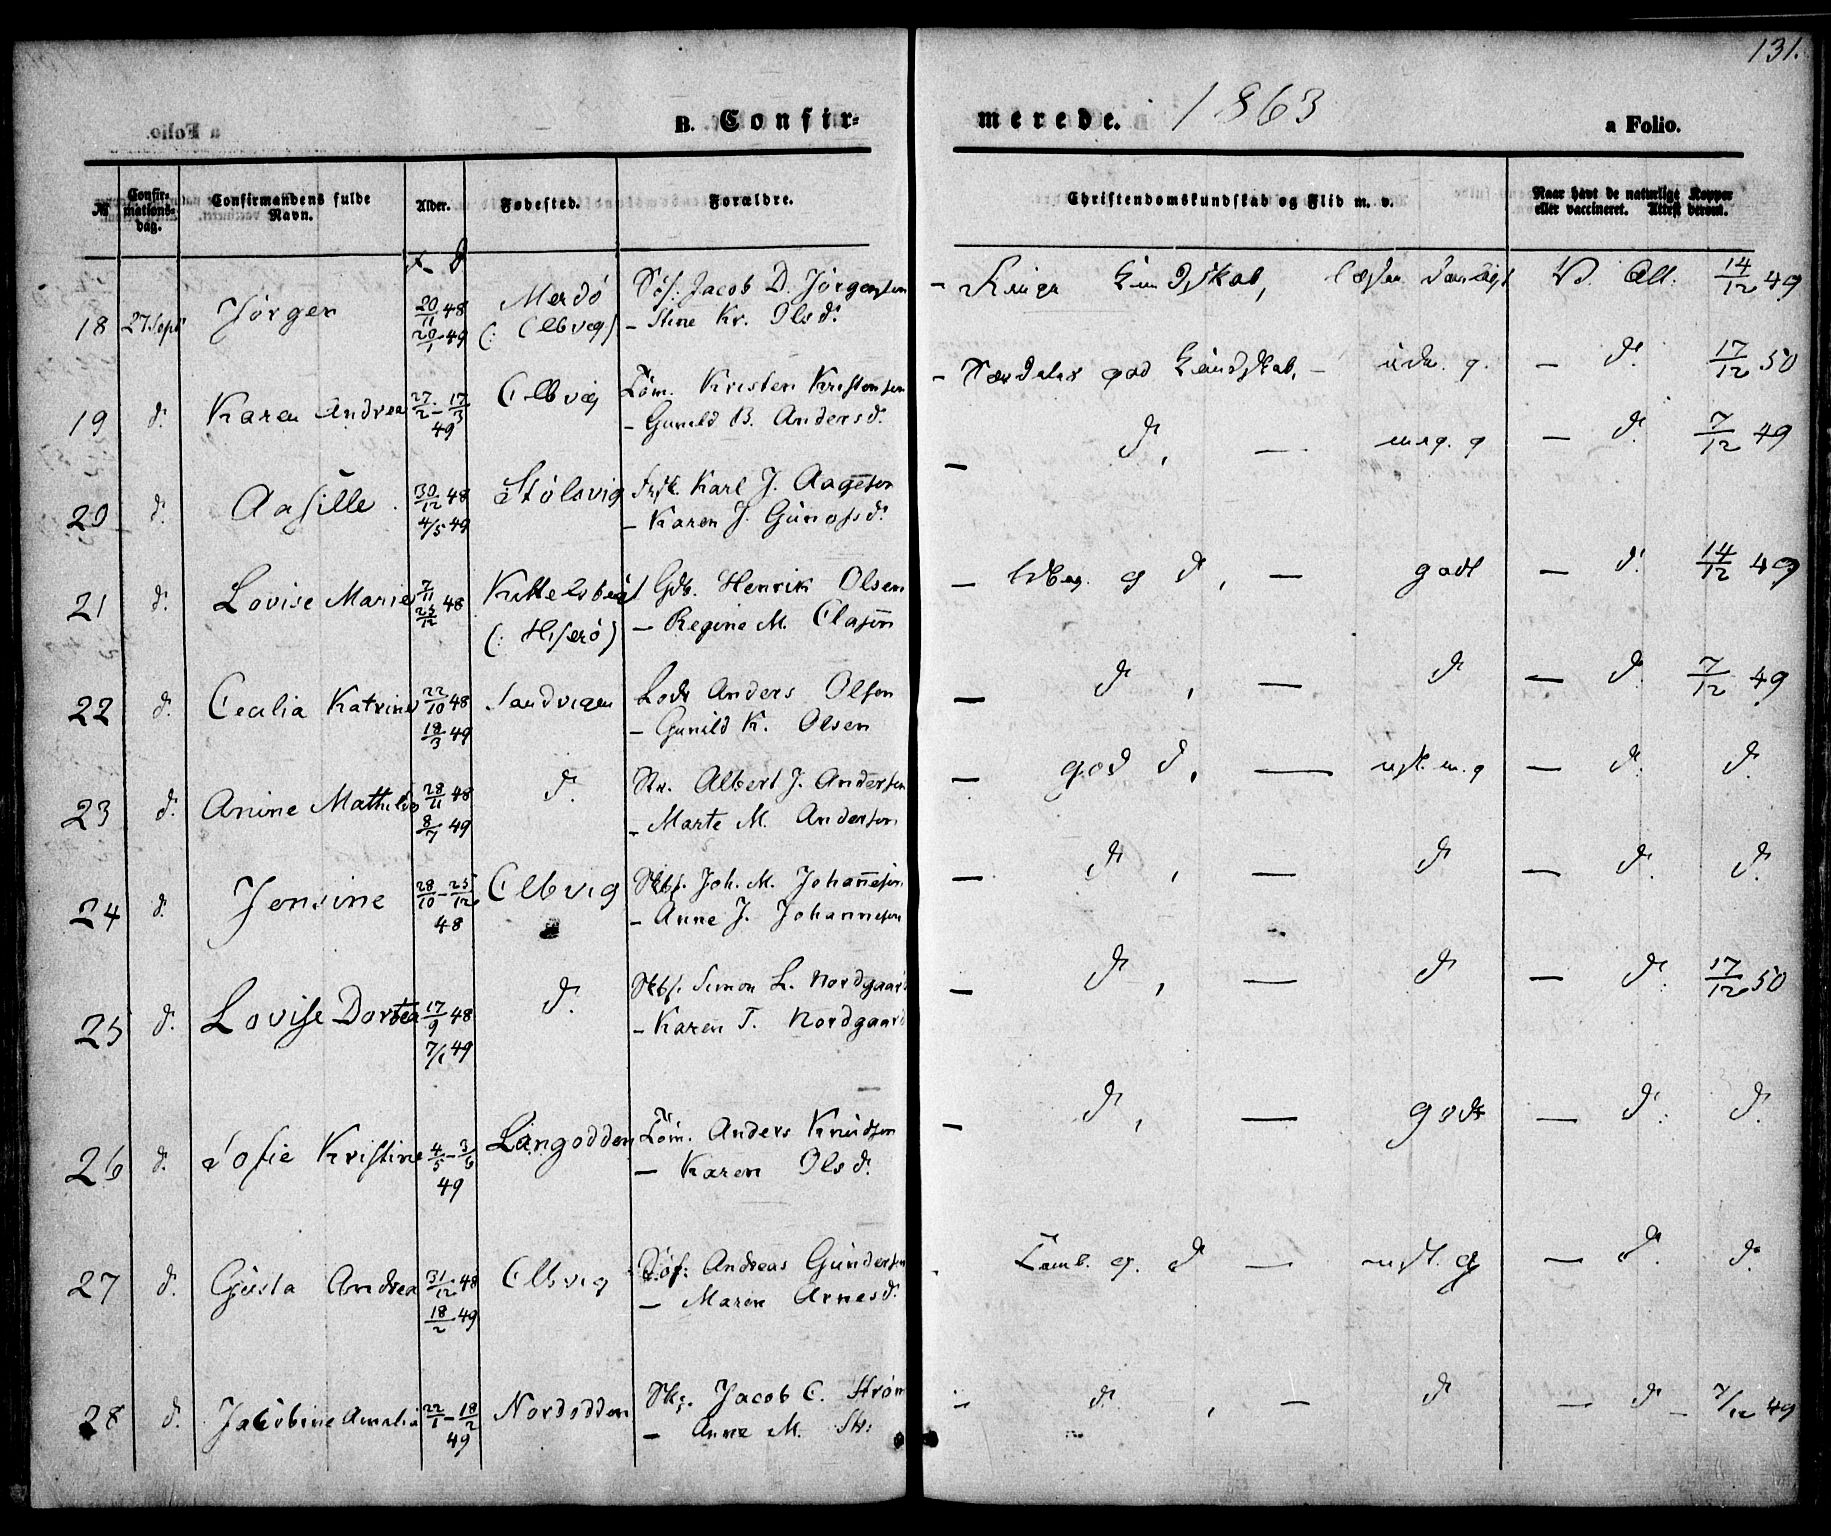 131.
B. Confir-
merede. 1863
a Folio.
№
Confir-
mations-
dag.
Confirmandens fulde
Navn.
Alder.
Fødested.
Forældre.
Christendomskundskab og Flid m. v.
Naar havt de naturlige Kopper
eller vaccineret. Attest derom.
18 27 Sept Jörgen 20/11 48 20/1 49 Merdö (: Elbvig) Söf. Jacob D. Jörgensen
– Stine Kr. Olsd.
– Ringe Kundskab, V. Att. 14/12 49
19 d. Karen Andrea 27/2 – 17/3 49 Elbvig Töm. Kristen Kristensen
– Gunild B. Andersd.
– Særdeles god Kundskab, – – d. 17/12 50
20 d. Aasille 30/12 48 4/5 49 Stölsvig Karl J. Aagesen
– Karen J. Gunofsd.
– d, – meg. g – d. 7/12 49
21 d. Lovise Marie 7/11 25/12 48 (: Hiserö) Gdb. Henrik Olsen
– Regine M. Clasen
– g d, – godt – d. 14/12 49
22 d. Cecilia Katrine 22/10 48 18/3 49 Sandvigen Lods Anders Olsen
– Gunild K. Olsen
– d, – d – d. 7/12 49
23 d. Anine Mathilde 28/11 48 8/7 49 d. Albert J. Andersen
– Marte M. Andersen
– god d, – m. g – d. d.
24 d. Jensine 28/10 – 25/12 48 Elbvig Skbf. Joh. M. Johannesen
– Anne J. Johannesen
– d, – d – d. d.
25 d. Lovise Dortea 17/9 48 7/1 49 d. Skbf. Simon L. Nordgaard
– Karen T. Nordgaard
– d, – d – d. 17/12 50
26 d. Sofie Kristine 4/5 – 3/6 49 Langodden Töm. Anders Knudsen
– Karen Olsd.
– d, – godt – d. d.
27 d. Gusta Andrea 31/12 48 18/2 49 Elbvig Söf. Andreas Gundersen
– Maren Arnesd.
g. d – g – d. d.
28 d. Jakobine Amalia 22/1 – 18/2 49 Nordodden Jacob C. Ström
– Anne M. Str:
– d, – d – d – 7/12 49